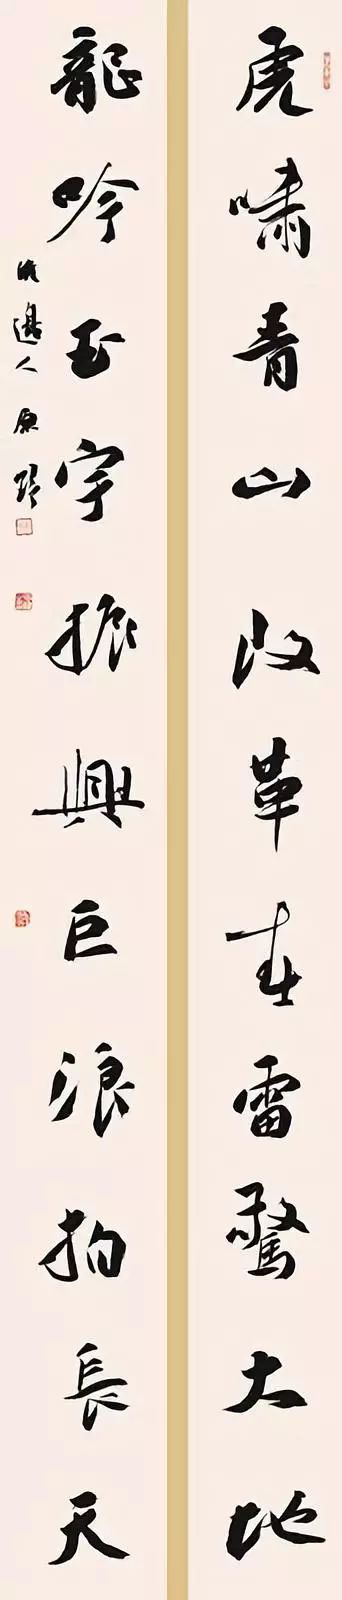 虎嘯青山改革春雷驚大地
龍吟玉宇振興巨浪拍長天
邊人原